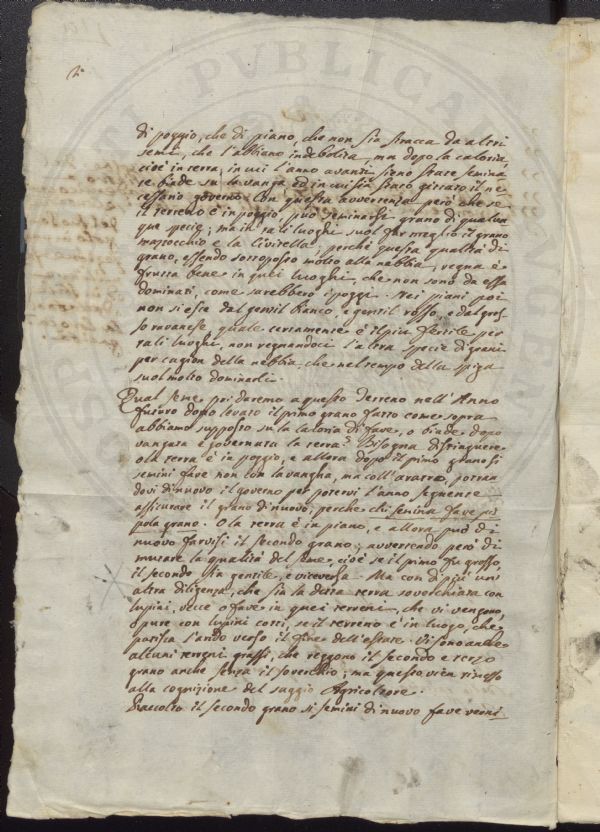 2.
di poggio, che di piano, che non sia stracca da altri
semi, che l'abbiano indebolita, ma dopo la caloria,
cioè in terra, in cui l'anno avanti siano state semina
te biade su la vanga ed in cui sia stato gittato il ne
cessario governo. Con questa avvertenza però che se
il terreno è in poggio, può seminarsi grano di qualun
que specie; ma in tali luoghi suol far meglio il grano
mazzocchio e la Civitella; perche questa qualità di
grano, essendo sottoposto molto alla nebbia, regna e
frutta bene in quei luoghi, che non sono da essa
dominati, come sarebbero i poggi. Nei piani poi
non si esce dal gentil bianco, e gentil rosso, e dal gros
so ravanese, quale certamente è il più fertile per
tali luoghi, non regnandoci l'altra specie di grani
per cagion della nebbia, che nel tempo della spiga
suol molto dominarli.
Qual seme poi daremo a questo Terreno nell'Anno
futuro dopo levato il primo grano fatto come sopra
abbiamo supposto su la caloria di fave, o biade dopo
vangata e gobernata la terra? Bisogna distinguere
o la terra è in poggio, e allora dopo il primo grano si
semini fave non con la vangha, ma coll'aratro, portan
dovi di nuovo il governo per potervi l'anno seguente
assicurare il grano di nuovo; perche chi semina fave pis
pola grano. O la terra è in piano, e allora può di
nuovo farvisi il secondo grano; avvertendo però di
mutare la qualità del seme, cioè se il primo fu grosso,
il secondo sia gentile, e viceversa. Ma con di più un'
altra diligenza, che sia la detta terra soverchiata con
lupini, vecce o fave in quei terreni, che vi vengono,
o pure con lupini cotti, se il terreno è in luogo, che
patisca l'ando verso il fine dell'estate. Vi sono anche
alcuni terreni grassi, che reggono il secondo e terzo
grano anche senza il soverchio; ma questo vien rimesso
alla cognizione del saggio Agricoltore.
Raccolto il secondo grano si semini di nuovo fave verni